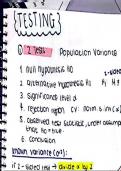 {TESTING}
① Z Tests Population Variance
1. null hypothesis H₀
2. alternative hypothesis H₁
3. significance level α
4. rejection region
5. observed test statistic, under assumption
that H₀ = true
6. conclusion
Known variance (σ²):
if 2-sided test → divide α by 2